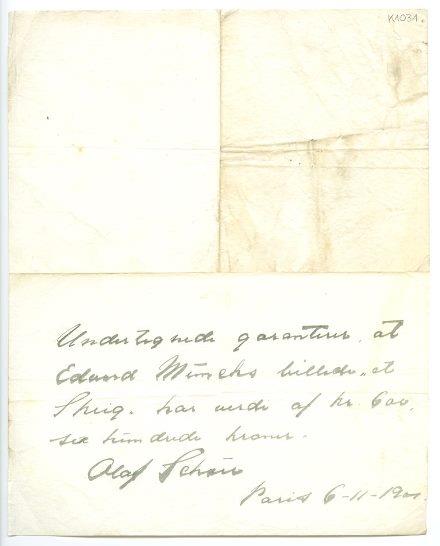 K1031.
Undertegnede garanterer, at
Edvard Munchs billede, et
har værdi af kr. 600,
sex hundrede kroner.
Olaf Schou
Paris 6-11-